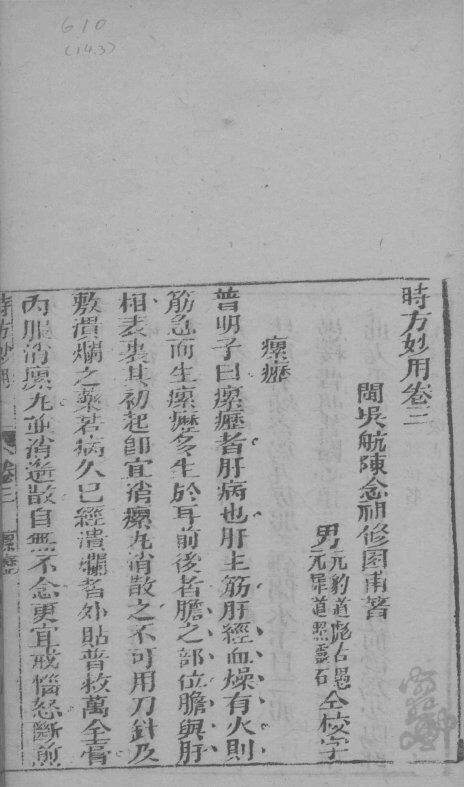 610
(143)
時方妙用卷三
閩吳航陳念祖修園甫著
男元豹道彪古愚
元犀道照靈石
仝校字
瘰癧
普明子曰瘰癧者肝病也肝主筋肝經血燥有火則
筋急而生瘰癧多生於耳前後者膽之部位膽與肝
相表裏其初起即宜消瘰丸消散之不可用刀針及
敷潰爛之藥若病久已經潰爛者外貼普救萬全膏
內服消瘰丸並消遙散自無不愈更宜戒惱怒斷煎
時方妙用 卷三 瘰癧